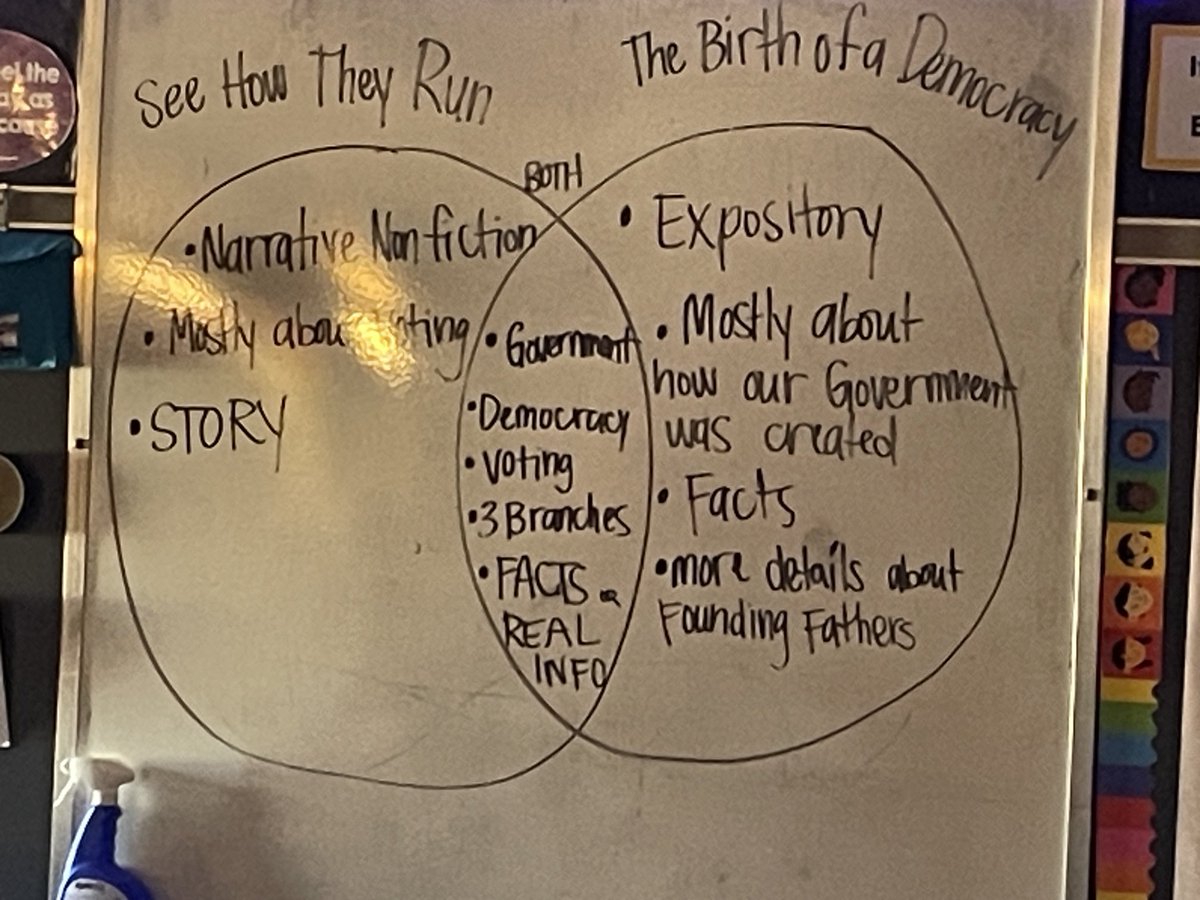 See How They Run
The Birth of a Democracy
BOTH
• Narrative Nonfiction
• Mostly about Voting
• STORY
• Government
• Democracy
• Voting
• 3 Branches
• FACTS or
REAL
INFO
• Expository
• Mostly about
how our Government
was created
• Facts
• more details about
Founding Fathers